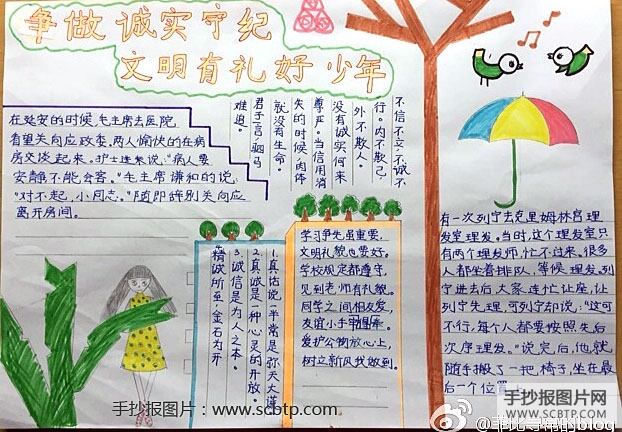 争做诚实守纪
文明有礼好少年
在延安的时候,毛主席去医院
看望关向应政委,两人愉快的在病
房交谈起来。护士进来说:"病人要
安静不能会客。"毛主席谦和的说,
"对不起,小同志。"随即辞别关向应
离开房间。
不信不立,不诚不
行。内不欺己,
外不欺人。
没有诚实何来
尊严。当信用消
失的时候,肉体
就没有生命。
君子一言,驷马
难追。
1.真话说一半常是弥天大谎
2.真诚是一种心灵的开放
3.诚信是为人之本。
4.精诚所至,金石为开
学习争先虽重要,
文明礼貌也要好。
学校规定都遵守,
见到老师有礼貌。
同学之间相友爱,
友谊小手
爱护公物放心上,
树立新风我做到。
有一次列宁去克里姆林宫理
发室理发。当时,这个理发室只
有两个理发师,忙不过来。很多
人都坐着排队,等候理发。列
宁进去后大家连忙让座,让
列宁先理,可列宁却说:"这可
不行,每个人都要按照先后
次序理发。"说完后,他就
随手搬了一把椅子,坐在最
后一个位置上
手抄报图片:www.scbtp.com
手抄报图片网
www.scbtp.com